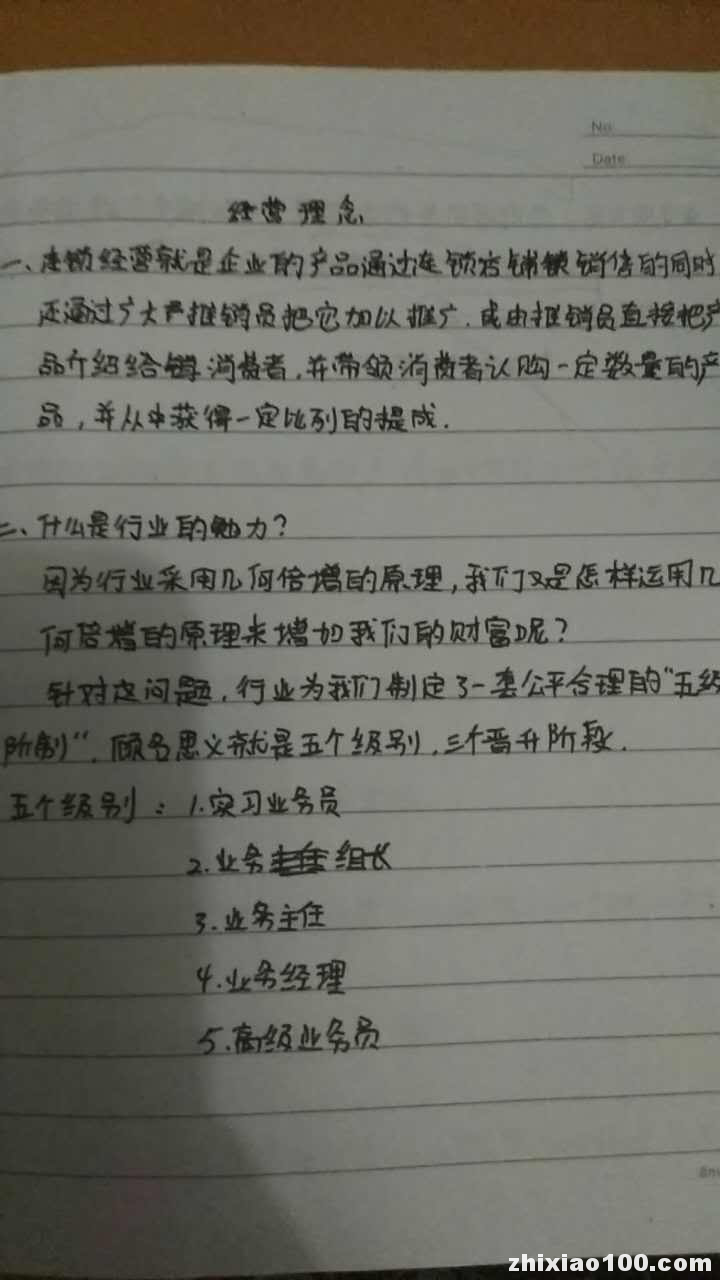 No
Date
经营理念
一、连锁经营就是企业的产品通过连锁店铺销售的同时
还通过广大严推销员把它加以推广.或由推销员直接把产
品介绍给消费者,并带领消费者认购一定数量的产
品,并从中获得一定比列的提成.
二、什么是行业的勉力?
因为行业采用几何倍增的原理,我们又是怎样运用几
何倍增的原理来增加我们的财富呢?
针对这问题,行业为我们制定了一套公平合理的"五级
阶制",顾名思义就是五个级别,三个晋升阶段.
五个级别:1.实习业务员
2.业务组长
3.业务主任
4.业务经理
5.高级业务员
zhixiao100.com